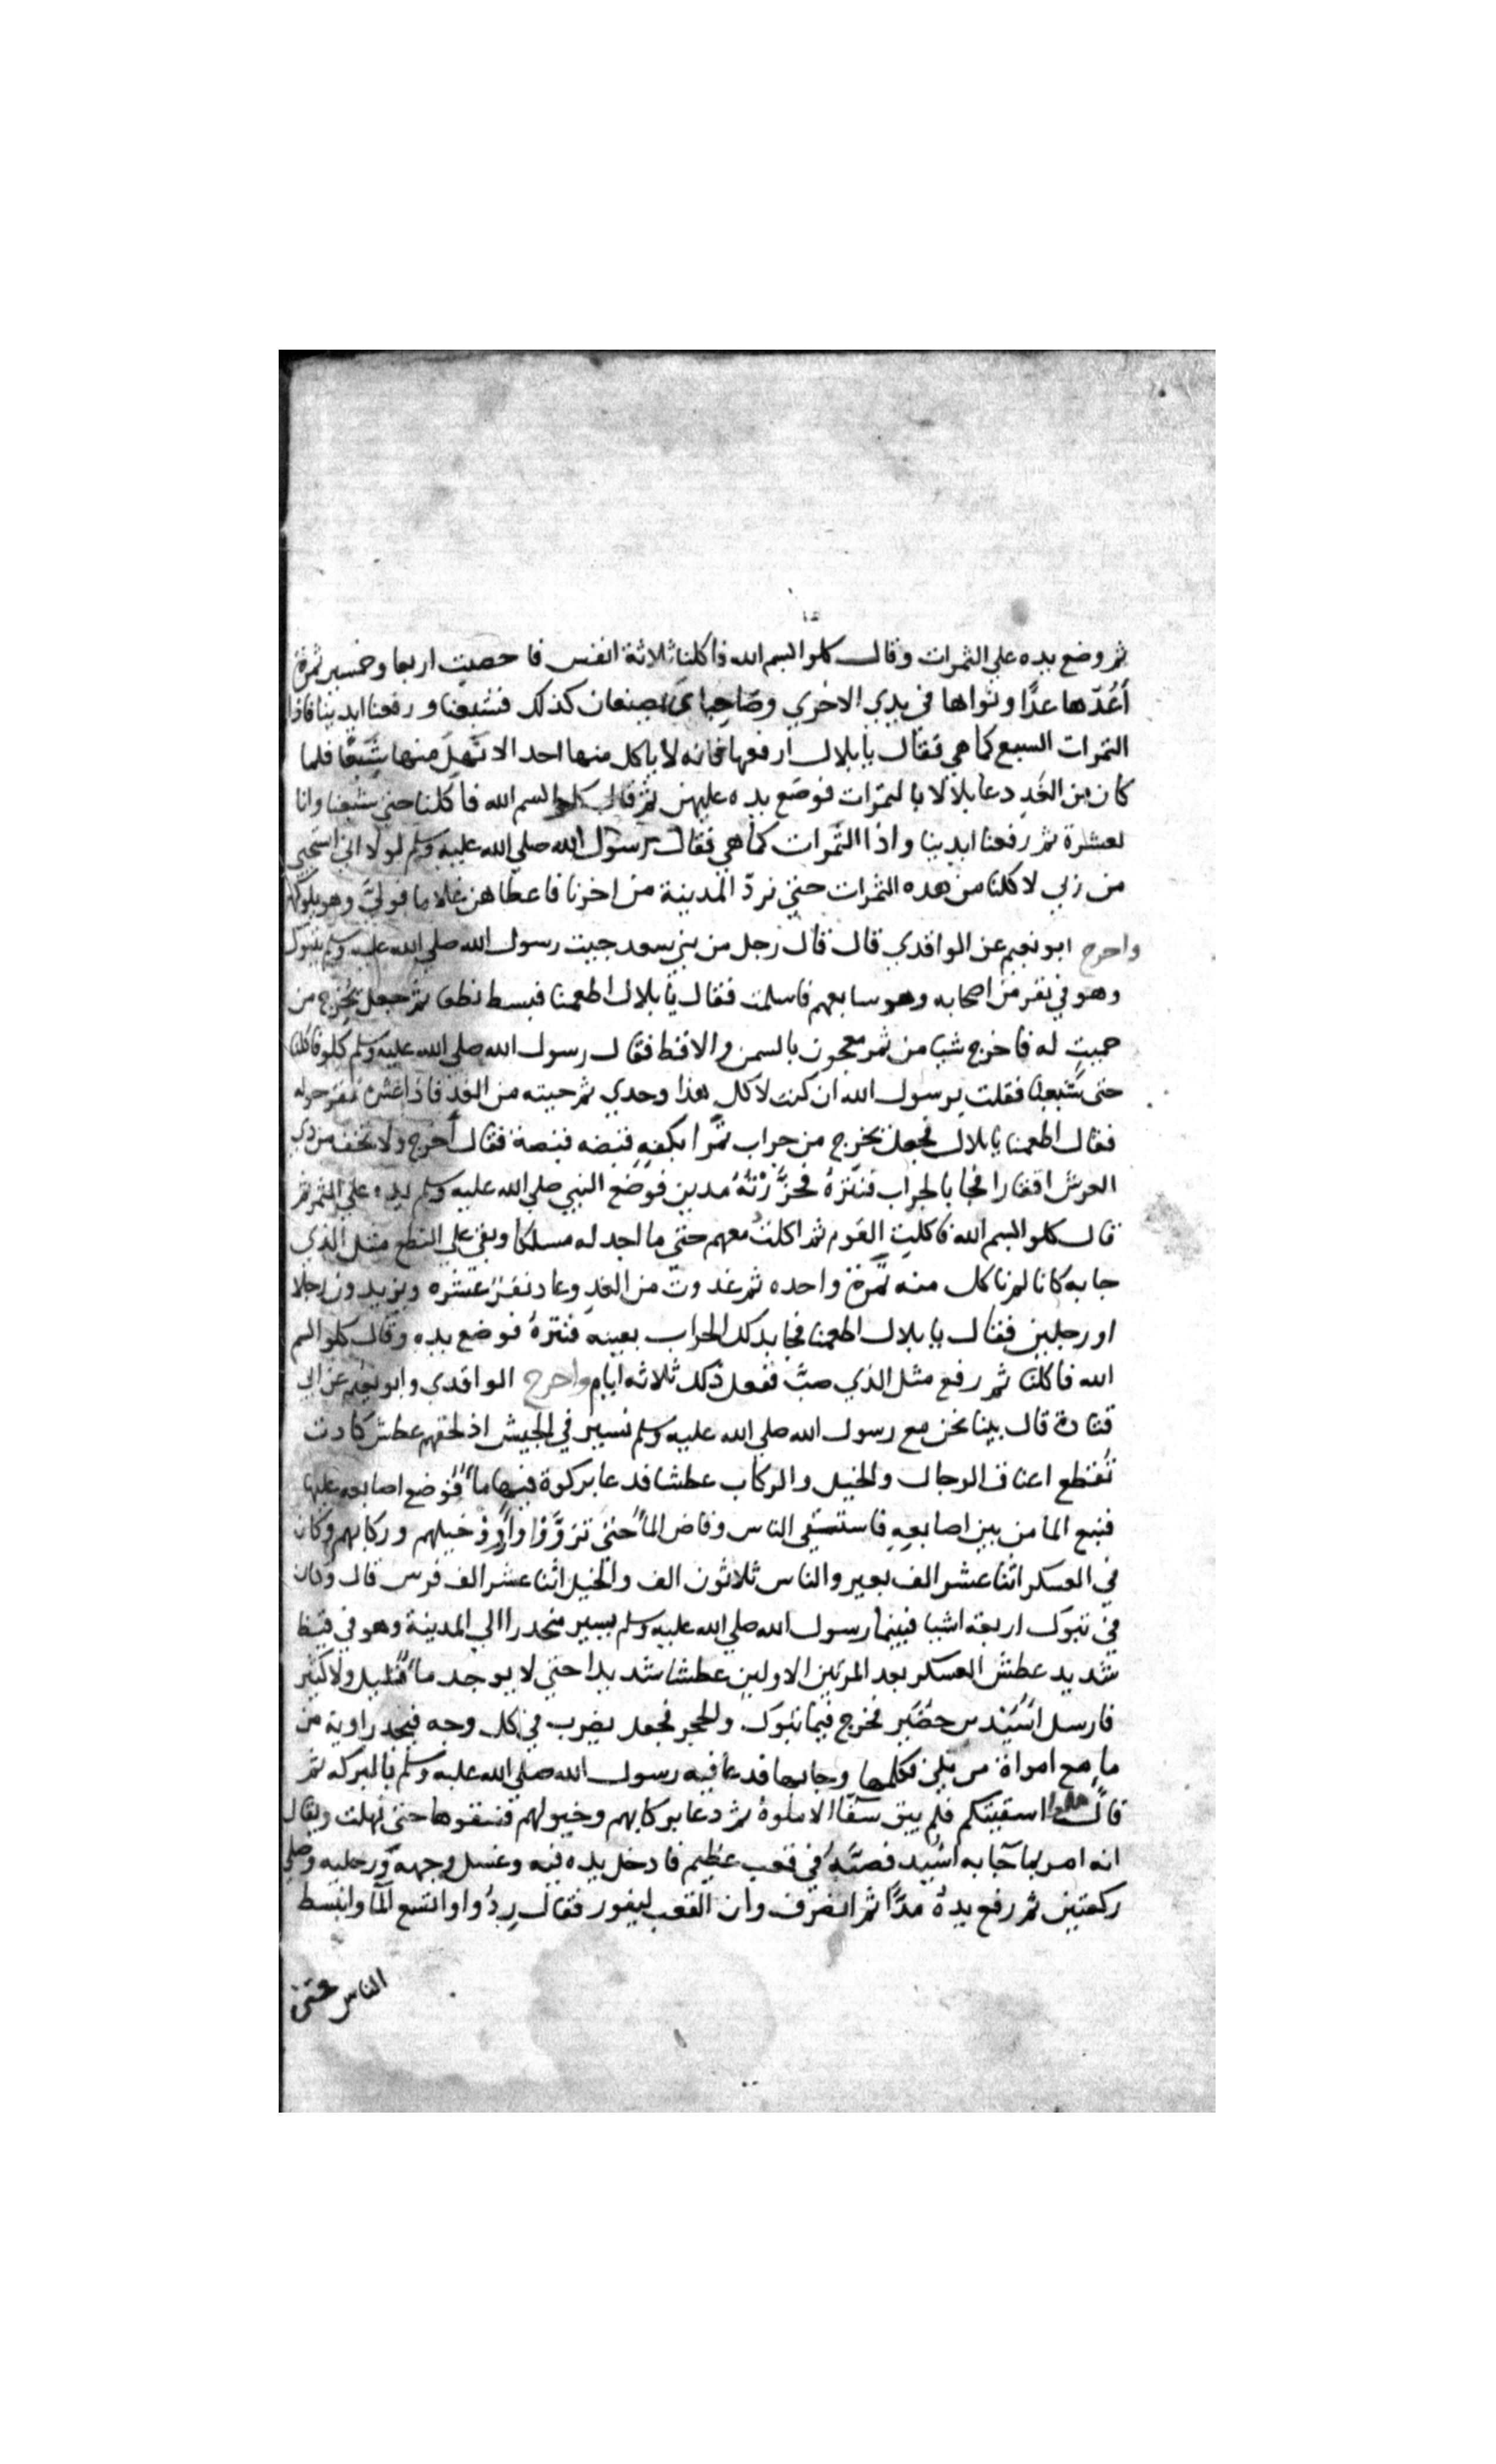 ثم وضع يده علي التمرات وقال كلوا بسم الله فاكلنا ثلاثة انفس فاحصيت اربعا وخمسين تمرة
أعُدّها عدًّا ونواها في يدي الاخري وصَاحِباي يصنعان كذلك فشبعنا ورفعنا ايدينا فاذا
التمرات السبع كما هي فقال يا بلال ارفعها فانه لا ياكل منها احد الا نهل منها شبعًا فلما
كان من الغَدِ دعا بلالا بالتمرات فوضع يده عليهن ثم قال كلوا بسم الله فاكلنا حتي شبعنا وانا
لعشرة ثم رفعنا ايدينا واذا التمرات كما هي فقال رسول الله صلي الله عليه وسلم لولا اني استحيي
من ربي لاكلنا من هده التمرات حتي نردّ المدينة من اخرنا فاعطاهن غلاما فولي وهو يلوكهن
واخرج ابو نعيم عن الواقدي قال قال رجل من بني سعد جيت رسول الله صلي الله عليه وسلم بتبوك
وهو في نفر من اصحابه وهو سابعهم فاسلمت فقال يا بلال اطعمنا فبسط نطعا ثم جعل يخرج من
حميتٍ له فاخرج شيا من تمر معجون بالسمن والاقط فقال رسول الله صلي الله عليه وسلم كلوا فاكلنا
حتى شبعنا فقلت يرسول الله ان كنت لاكل هذا وحدي ثم جيته من الغد فاذا عشرة نفر حوله
فقال اطعمنا يا بلال فجعل يخرج من جراب تمرا بكفه قبضه قبضة فقال أخرج ولا تخف من ذي
العرش اقتارا فجا بالجراب فنثرهُ فحزَّرْتُهُ مدين فوضع النبي صلي الله عليه وسلم يده علي التمر ثم
قال كلوا بسم الله فاكلت القوم ثم اكلت معهم حتي ما اجد له مسلكا وبقي علي النطع مثل الذي
جا به كانا لم ناكل منه تَمرة واحده ثم غدوت من الغدِ وعاد نفر عشره ويزيدون رجلا
او رجلين فقال يا بلال اطعمنا فجا بدلك الجراب بعينه فنثرهُ فوضع يده وقال كلوا بسم
الله فاكلنا ثم رفع مثل الذي صبّ ففعل ذلك ثلاثه ايام واخرج الواقدي وابو نعيم عن ابي
قتادة قال بينا نحن مع رسول الله صلي الله عليه وسلم نسير في الجيش اذ لحقهم عطش كادت
تُقتطع اعناق الرجال والخيل والركاب عطشا فدعا بركوة فيها ماً فوضع اصابعه عليها
فنبع الما من بين اصابعِهِ فاستسقى الناس وفاض الماً حتي تروَّوْا وارووْ خيلهم وركابهم وكان
في العسكر اثنا عشر الف بعير والناس ثلاثون الف والخيل اثنا عشر الف فرس قال وكان
في تبوك اربعة اشيا فبينما رسول الله صلي الله عليه وسلم يسير منحدرا الي المدينة وهو في قيظ
شديد عطش العسكر بعد المرتين الاولين عطشا شديدا حتي لا يوجد ماً قليل ولا كثير
فارسل اسَيْد بن حضير فخرج فيما تبوك والحجر فجعل يضرب في كل وجه فيجد راوية من
ما مع امراة من بلي فكلمها وجا بها فدعا فيه رسول الله صلي الله عليه وسلم بالبركه ثم
قال هلموا اسقيتكم فلم يبق سقا الا ملوهُ ثم دعا بركابهم وخيولهم فسقوها حتي نهلت ويقال
انه امر بما جآ به اسَيد فصبَّهُ في قعب عظيم فادخل يده فيه وغسل وجهه ورجليه وصلي
ركعتين ثم رفع يدهُ مدًّا ثم انصرف وان القعب ليفور فقال رِدُوا واتسع المآ وانبسط
الناس حتي